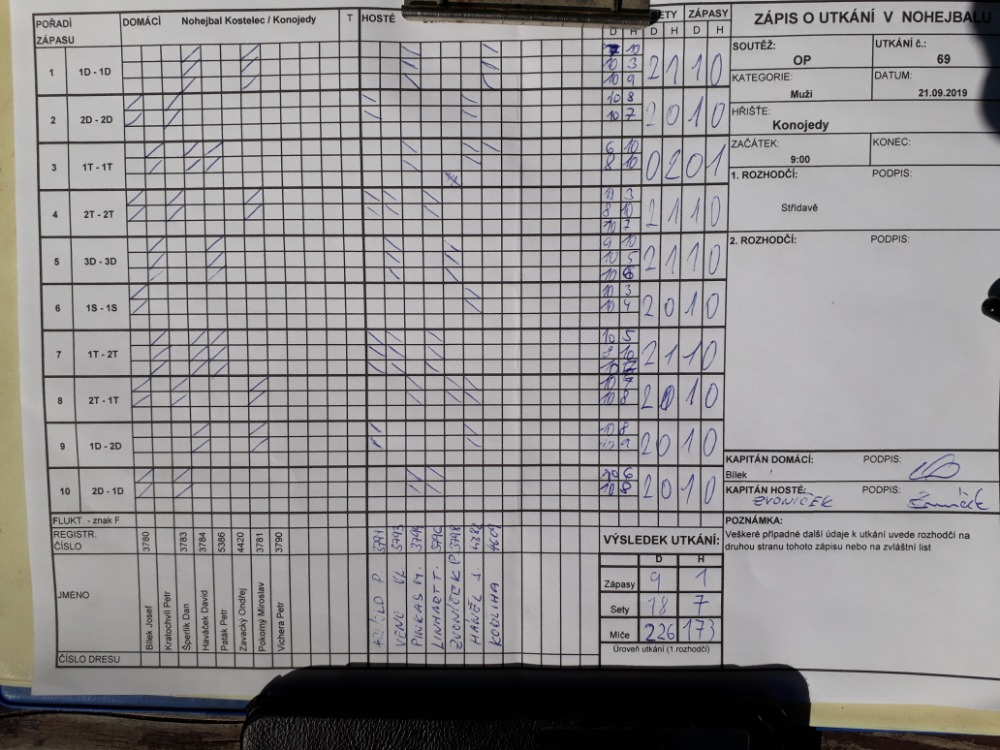 POŘADÍ ZÁPASU
DOMÁCÍ Nohejbal Kostelec / Konojedy T HOSTÉ
SETY ZÁPASY
D H D H D H
1 1D - 1D 10 10 3 10 9 2 1 1 0
2 2D - 2D 10 8 10 7 2 0 1 0
3 1T - 1T 6 10 8 10 0 2 0 1
4 2T - 2T 10 3 8 10 10 7 2 1 1 0
5 3D - 3D 9 10 10 5 10 2 1 1 0
6 1S - 1S 10 3 10 4 2 0 1 0
7 1T - 2T 10 5 10 10 2 1 1 0
8 2T - 1T 10 7 10 8 2 0 1 0
9 1D - 2D 10 8 2 0 1 0
10 2D - 1D 10 6 10 2 0 1 0
FLUKT. - znak F
REGISTR. ČÍSLO 3780 3783 3784 5386 4420 3781 3790 3791 3793 3796 3798 4382
JMENO
Bílek Josef
Kratochvíl Petr
Šperlík Dan
Haváček David
Paták Petr
Zavacký Ondřej
Pokorný Miroslav
Vichera Petr
VL.
PINKAS M.
LINHART T.
ZVONÍČEK P
ČÍSLO DRESU
VÝSLEDEK UTKÁNÍ:
D H
Zápasy 9 1
Sety 18 7
Míče 226 173
Úroveň utkání (1.rozhodčí)
ZÁPIS O UTKÁNÍ V NOHEJBALU
SOUTĚŽ: OP
UTKÁNÍ č.: 69
KATEGORIE: Muži
DATUM: 21.09.2019
HŘIŠTE: Konojedy
ZAČÁTEK: 9:00
KONEC:
1. ROZHODČÍ: PODPIS:
Střídavě
2. ROZHODČÍ: PODPIS:
KAPITÁN DOMÁCÍ: PODPIS:
Bílek
KAPITÁN HOSTÉ: PODPIS:
ZVONÍČEK
POZNÁMKA:
Veškeré případné další údaje k utkání uvede rozhodčí na
druhou stranu tohoto zápisu nebo na zvláštní list